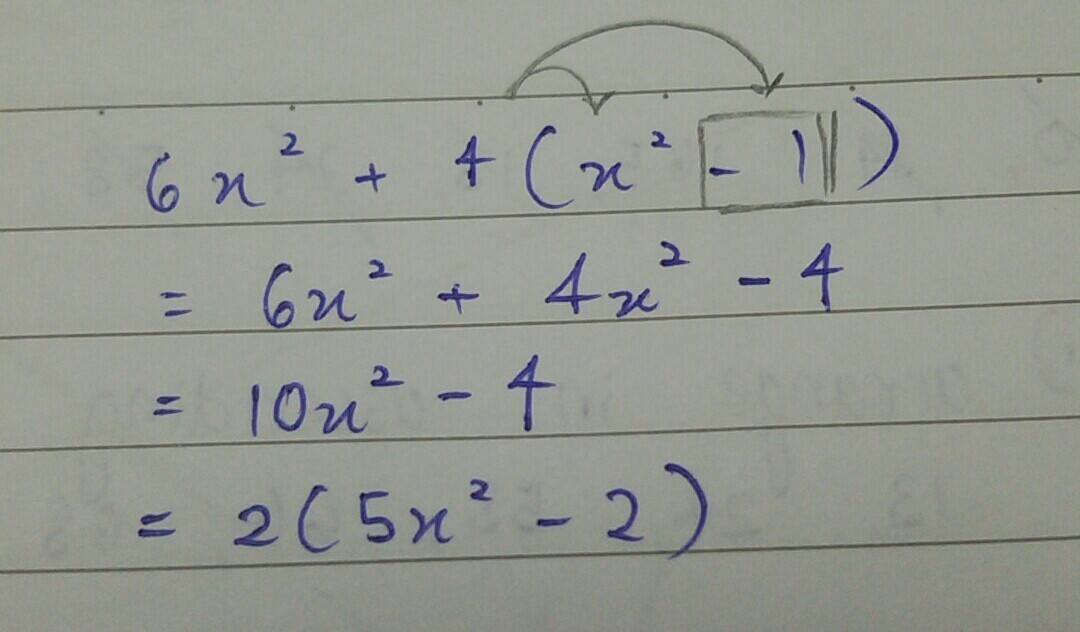 6x² + 4(x² - 1)
= 6x² + 4x² - 4
= 10x² - 4
= 2(5x² - 2)